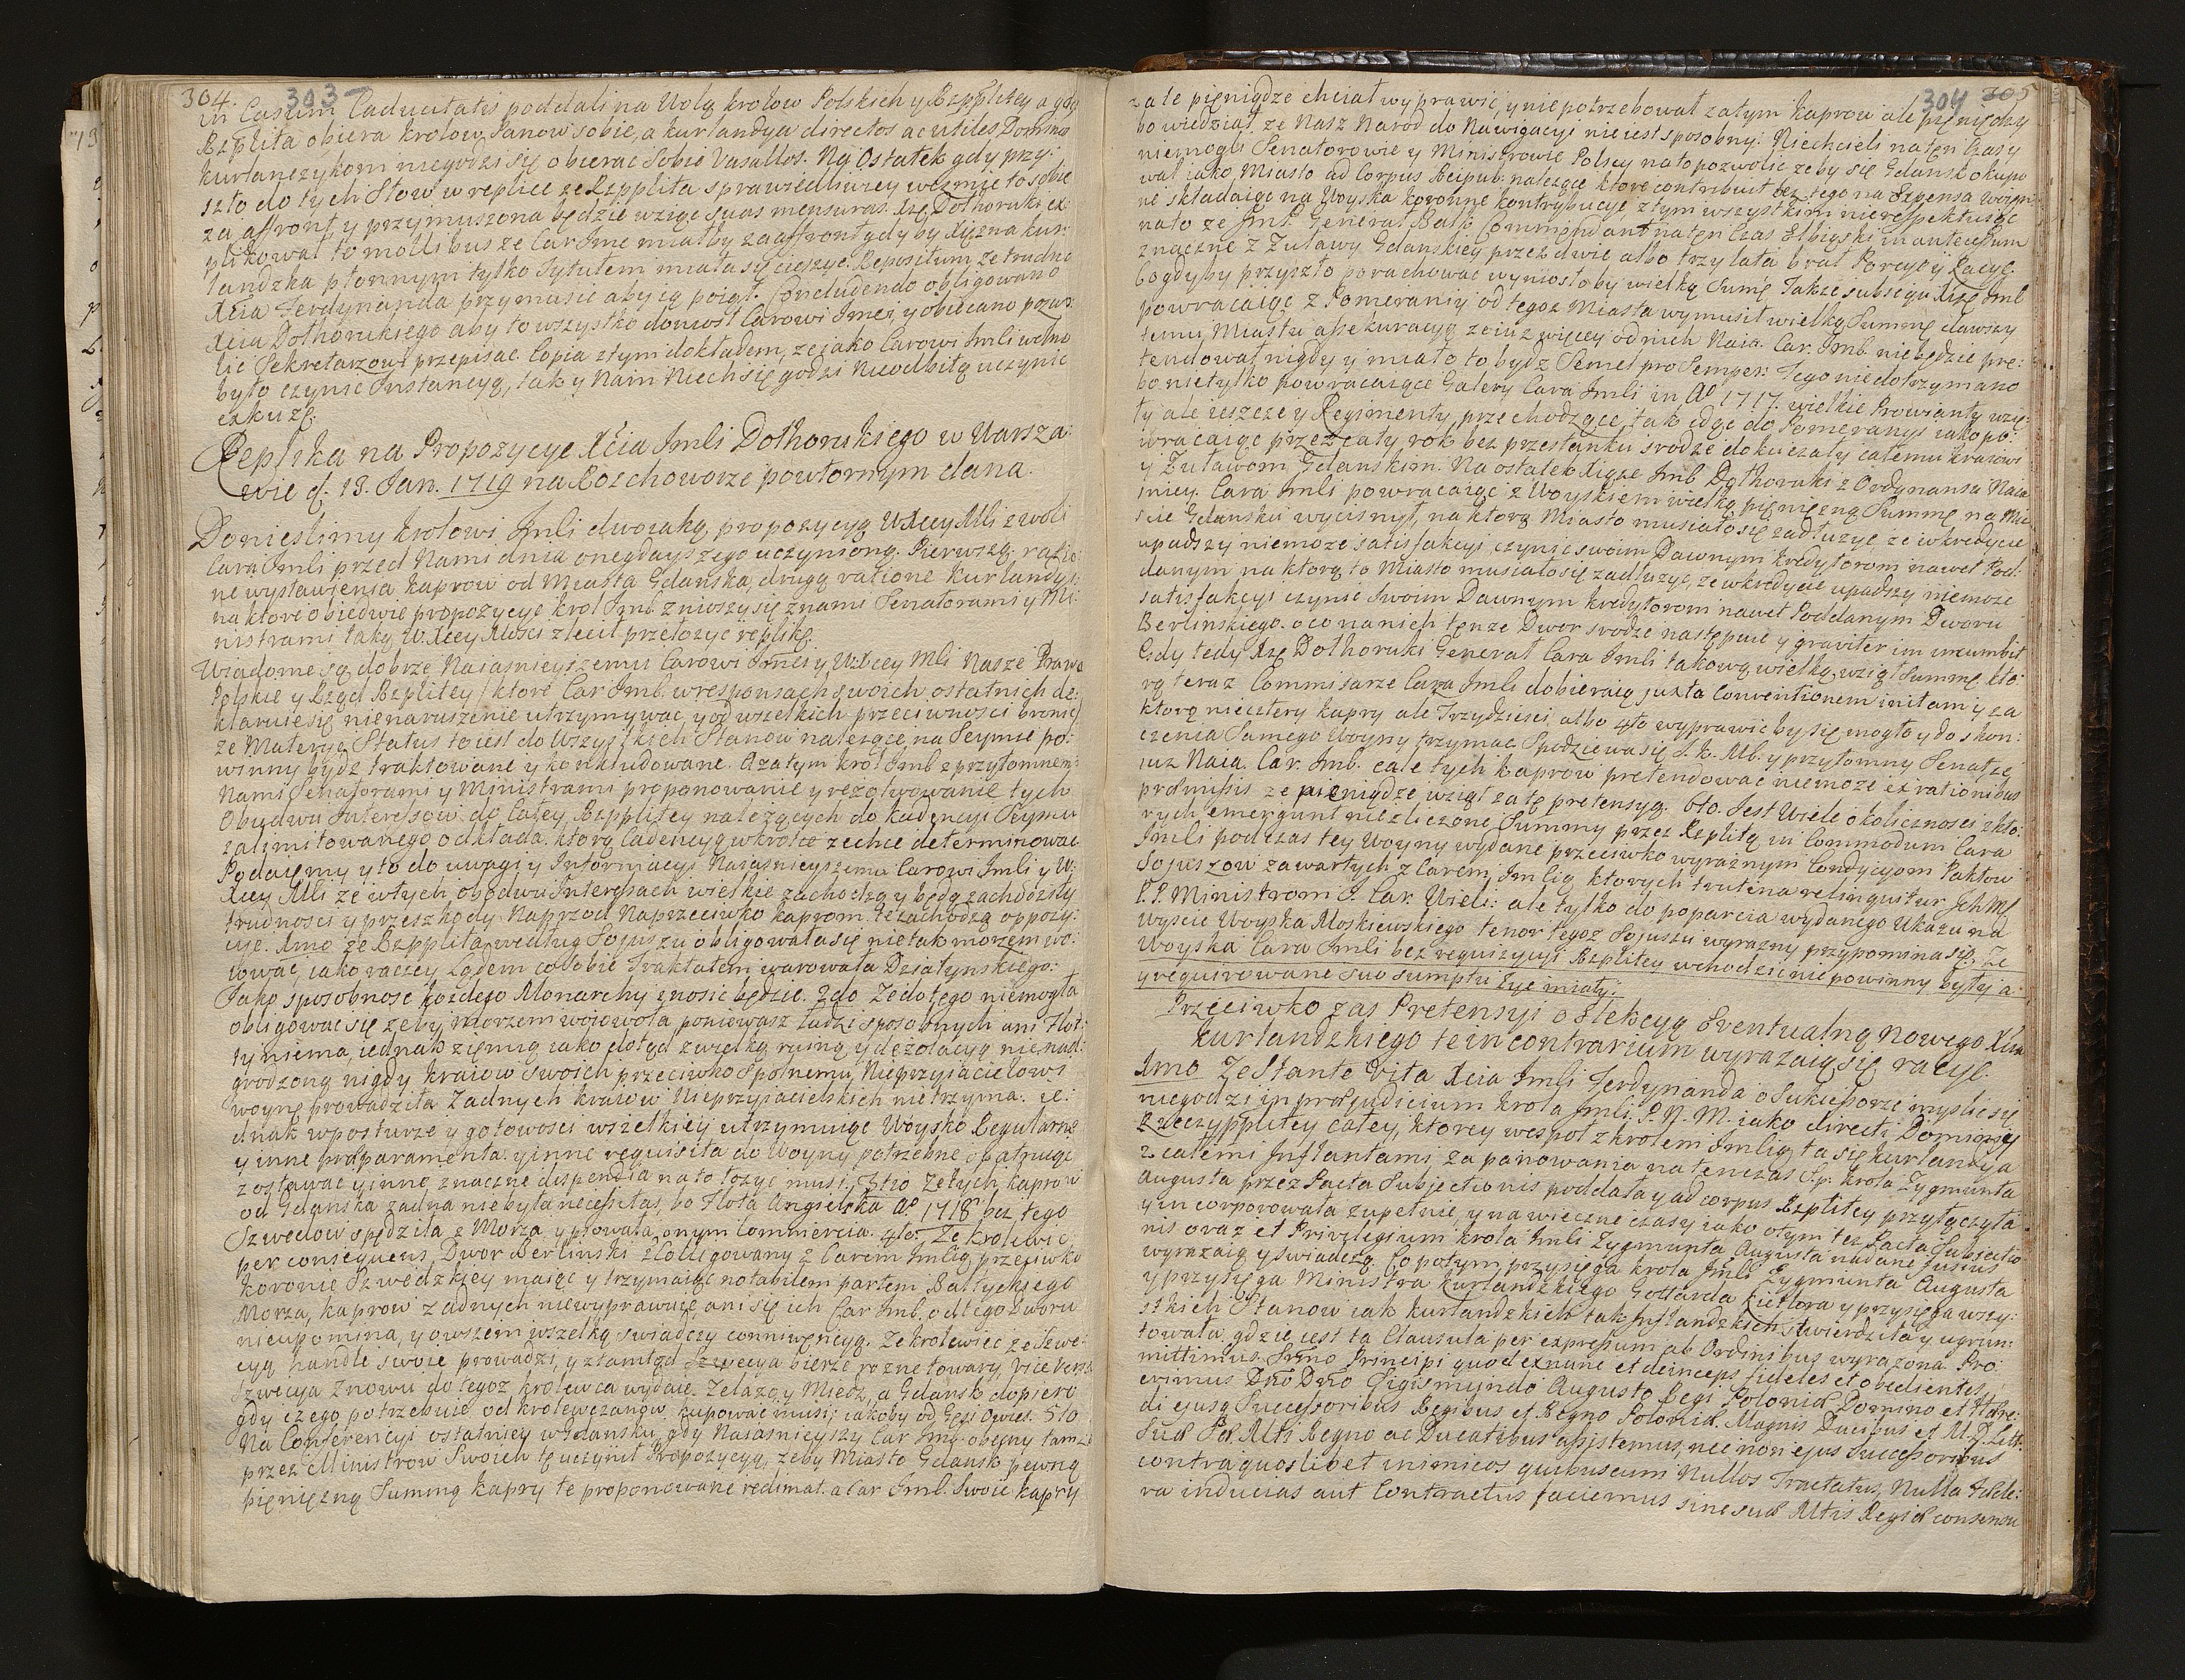 304. 303
in Casum Caducitatis poddali na Wolą krolow Polskich y Rzpplitey a gdy
Rzplita obiera krolow Panow sobie, a kurlandya directos ac utiles Dominos
kurlanczykom niegodzi się obierac Sobie Vasallos. Na Ostatek gdy przy:
szło do tych Słow w replice ze Rzpplita sprawiedliwiey weźmie to sobie
za affront y przymuszona będzie wziąc suas mensuras. Xzę Dothoruki ex:
plikował to mollibus ze Car Jmc miałby za affront gdy by Xięzna kur:
landzka płonnym tylko Tytułem miała się cieszyc. Repositum ze trudno
Xcia Ferdynanda przymusic aby ią poiął. Concludendo obligowano
Xcia Dothorukiego aby to wszystko doniosł Carowi Jmci, y obiecano pozwo:
lic Sekretarzowi przepisac Copia z tym dokładem, ze jako Carowi Jmli wolno
było czynic Instancyą, tak y Nam Niech się godzi Nieodbitą uczynic
exkuzę.
Replika na Propozycye Xcia Jmli Dothorukiego w Warsza:
wie d. 13. Jan. 1719 na Rozchoworze powtornym dana.
Donieslimy krolowi Jmli dwoiaką propozycyą WXcey Mli z woli
Cara Jmli przed Nami dnia onegdayszego uczynioną. Pierwszą ratio:
ne wystawienia kaprow od Miasta Gdanska, drugą ratione Kurlandyi:
na ktore obiedwie propozycye krol Jmł. zniosszy się z nami Senatorami y Mi:
nistrami taką W.Xcey Mosci zlecił przełozyc replikę.
Wiadome są dobrze Naiasnieyszemu Carowi Jmci y W.Xcey Mli Nasze Prawa
Polskie y Rząd Rzplitey / ktore Car Jmł. w responsach swoich ostatnich de:
klaruie się nienaruszenie utrzymywac, y od wszelkich przeciwnosci bronic /
ze Materye Status to iest do Wszystkich Stanow nalezące, na Seymie po:
winny bydz traktowane y konkludowane. A zatym krol Jmł z przytomnemi
Nami Senatorami y Ministrami proponowanie y rezolwowanie tych
Obydwu Interessow do Całey Rzpplitey nalezących do kadencyi Seymu
zalimitowanego odkłada. ktorą Cadencyą wkrotce zechce determinowac
Podaiemy y to do uwagi y Informacyi Naiasnieyszemu Carowi Jmli y W.
Xcey Mli ze w tych obudwu Interessach wielkie zachodzą y będą zachodziły
trudnosci y przeszkody Naprzod Naprzeciwko kaprom te zachodzą oppozy:
cye. Xmo ze Rzpplita według Sojuszu obligowała się nie tak morzem wo:
iowac, iako raczey Lądem co Sobie Traktatem warowała Działynskiego:
Jako sposobnosc kozdego Monarchy znosic będzie. 2do Ze do tego niemogła
obligowac się zeby morzem woiowała, poniewasz ludzi sposobnych ani Flot:
ty niema, iednak ziemią iako dotąd z wielką ruiną y dezolacyą nienad:
grodzoną nigdy kraiow swoich przeciwko Spolnemu Nieprzyiacielowi
woynę prowadziła Zadnych kraiow Nieprzyiacielskich nie trzyma. ie:
dnak w posturze y gotowosci wszelkiey utrzymuiąc Woysko Regularne
y inne praeparamenta, y inne requisita do Woyny potrzebne opatruiąc
zostawac y inne znaczne dispendia na to łozyc musi. 3tio Ze tych kaprow
od Gdanska zadna nie była necessitas, bo Flota Angielska Aº 1718 bez tego
Szwedow spędziła z Morza y psowała onym Commercia. 4to. Ze krolewic
per consequens Dwor Berlinski z Colligowany z Carem Jmlią przeciwko
koronie Szwedzkiey maiąc y trzymaiąc notabilem partem Baltyckiego
Morza, kaprow zadnych niewyprawuie, ani się ich Car Jmł. od tego Dworu
nieupomina, y owszem wszelką swiadczy connivencyą. Ze krolewiec ze Szwe:
cyą handle swoie prowadzi, y ztamtąd Szwecya bierze rozne towary, vice versa
Szwecya znowu do tegoz krolewca wydaie Zelazo y Miedz, a Gdansk dopiero
gdy czego potrzebuie od krolewczanow kupowac musi; iakoby od Gęsi Owies. 5to
Na Conferencyi ostatniey w Gdansku, gdy Naiasnieyszy Car Jmc obecny tamze
przez Ministrow Swoich tę uczynił Propozycyą, zeby Miasto Gdansk pewną
pięniezną Summą kapry te proponowane redimat. a Car Jmł. Swoie kapry
304 305
za te pięniądze chciał wyprawic, y nie potrzebował zatym kaprow ale pięniędzy
bo wiedział, ze Nasz Narod do Nawigacyi nie iest sposobny: Niechcieli na ten Czas y
niemogli Senatorowie y Ministrowie Polscy na to pozwolic zeby się Gdansk okupo
wał iako Miasto ad Corpus Reipub: nalezące ktore contribuit bez tego na Expensa Woien
ne składaiąc na Woyska koronne kontrybucye, z tym wszystkim nierespektuiąc
na to ze Jmł. Generał Balk Commendant na ten Czas Elbiąski in antecessum
znaczne z Zuławy Gdanskiey przez dwie albo trzy lata brał Porcye y Racye.
bo gdyby przyszło porachowac wyniosłoby wielką Sumę Takze subsequ Xżę Jmł
powracaiąc z Pomeranii od tegoz Miasta wymusił wielką Summę dawszy
temu Miastu assekuracyą ze iuz więcey od nich Naia. Car. Jmł. niebędzie pre:
tendował nigdy y miało to bydz Semel pro Semper: Tego nie dotrzymano
bo nietylko powracaiące Galery Cara Jmli in Aº 1717. wielkie Prowianty wzy:
ły ale ieszcze y Regimenty przechodzące, tak idąc do Pomeranyi iako po:
wracaiąc przez cały rok bez przestanku srodze dokuczały całemu kraiowi
y Zuławom Gdanskim. Na ostatek Xiąze Jmł Dothoruki z Ordynansu Naia
sniey. Cara Jmli powracaiąc z Woyskiem wielką pięniezną Summę na Mie
scie Gdansku wycisnął, na ktorą Miasto musiało się zadłuzyc ze w kredycie
upadszy niemoze satisfakcyi czynic swoim Dawnym kredytorom nawet Pod:
danym na ktorą to Miasto musiało się zadłuzyc, ze w kredycie upadszy niemoze
satisfakcyi czynic Swoim Dawnym kredytorom nawet Poddanym Dworu
Berlinskiego. o co na nich tenze Dwor srodze następuie y graviter im incumbit
Gdy tedy Xzę Dothoruki Generał Cara Jmli takową wielką wziął Summę kto:
rą teraz Commisarze Cara Jmli dobieraią juxta Conventionem initam y za
ktorą nie cztery kapry ale Trzydziesci, albo 4to wyprawic by się mogło y do skon:
czenia Samego Woyny trzymac Spodziewa się J. K. Mł. y przytomny Senat ze
iuz Naia. Car. Jmł. cale tych kaprow pretendowac niemoze ex rationibus
praemissis ze pieniądze wziął za tę pretensyą. 6to. Jest Wiele okolicznosci z kto:
rych emergunt niezliczone Summy przez Rzplitą in Commodum Cara
Jmli podczas tey Woyny wydane przeciwko wyraznym Condycyom Paktow
Sojuszow zawartych z Carem Jmlią ktorych trutina relinquitur Jch Ml
P.P. Ministrom J. Car. Wieli: ale tylko do poparcia wydanego Ukazu na
wyscie Woyska Moskiewskiego tenor tegoz Sojuszu wyrazny przypomina się, Ze
Woyska Cara Jmli bez requizycyi Rzplitey wchodzic nie powinny były a
y requirowane suo sumptu zyc miały.
Przeciwko zas Pretensyi o Elekcyą Eventualną nowego Xcia
kurlandzkiego te in contrarium wyrazaią się racye.
Xmo Ze Stante Vita Xcia Jmli Ferdynanda o Sukcessorze myslic się
niegodzi in praejudicium krola Jmli P. N. M. iako directi Dominii y
Rzeczypplitey całey, ktorey wespoł z krolem Jmlią ta się kurlandya
z całemi Inflantami za panowania na ten czas S.p. krola Zygmunta
Augusta przez Pacta Subjectionis poddała y ad corpus Rzplitey przyłączyła
y incorporowała zupełnie, y na wieczne czasy iako o tym też Pacta Subiectio
nis oraz et Privilegium krola Jmli Zygmunta Augusta nadane fusius
wyrazaią y swiadczą. Co potym przysięga krola Jmli Zygmunta Augusta
y przysięga Ministra kurlandzkiego Gottarda Kietlora y przysięga wszy:
stkich Stanow iak kurlandzkich tak Inflandzkich stwierdziła y ugrun:
towała gdzie iest ta Clausula per expressum ab Ordinibus wyrazona Pro
mittimus Srmo Principi quod exnunc et deinceps fideles et obedientes
erimus Dno Dno Sigismundo Augusto Regi Poloniae Domino et Haere:
di ejusq Successoribus Regibus et Regno Poloniae. Magnis Ducibus et M. D. Litt.
Suae Rae Mtti Regno ac Ducatibus assistemus, nec non ejus Successoribus
contra quoslibet inimicos quibuscum Nullos Tractatus, Nulla Faede:
ra inducias aut Contractus faciemus sine suae Mttis Regiae consensu